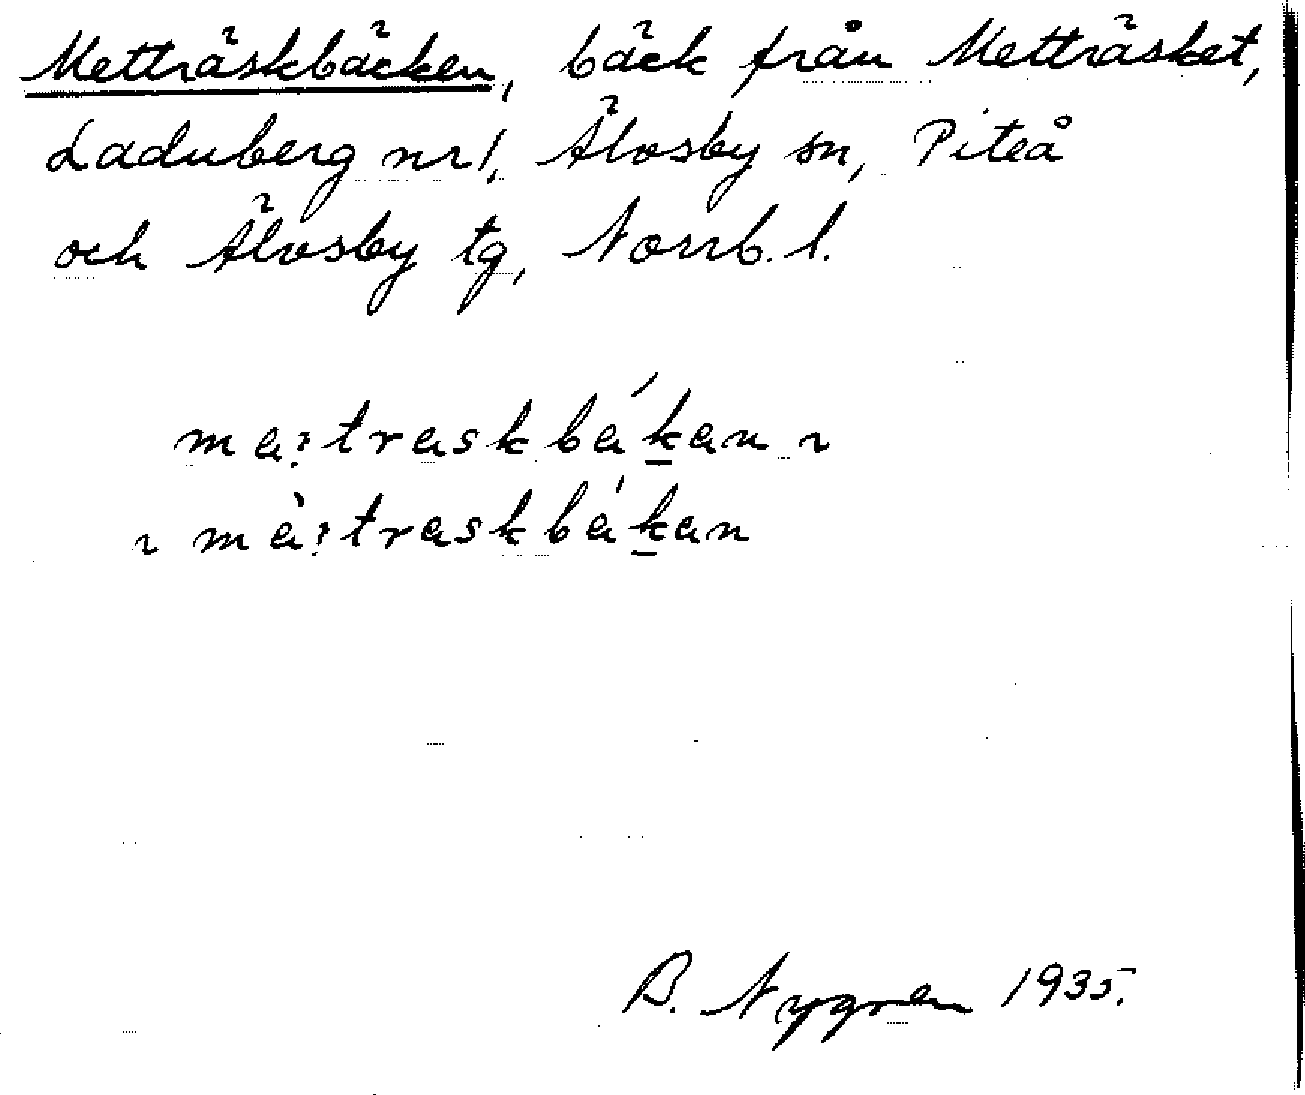 Metträskbäcken, bäck från Metträsket,
Laduberg nr 1, Älvsby sn, Piteå
och Älvsby tg, Norrb. l.
maitraskbákan ~
~ màitraskbákan
B. Nygren 1935.